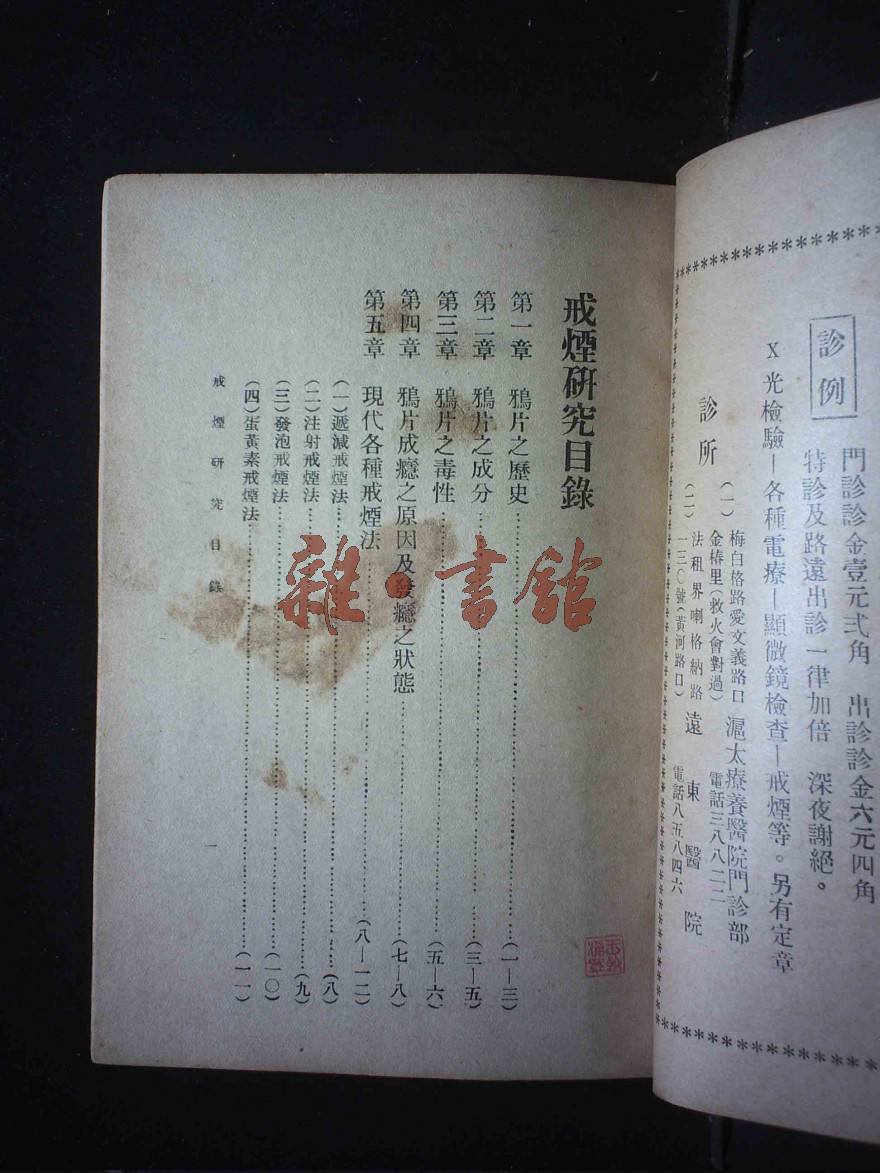 診例
門診診金壹元弍角　出診診金六元四角
特診及路遠出診一律加倍　深夜謝絕。
X光檢驗—各種電療—顯微鏡檢查—戒煙等。另有定章
診所
(一)梅白格路愛文義路口
金椿里(救火會對過)
滬太療養醫院門診部
電話三八八二二
(二)法租界喇格納路
一三〇號(黃河路口)
遠東醫院
電話八五八四六
戒煙研究目錄
第一章　鴉片之歷史……(一—三)
第二章　鴉片之成分……(三—五)
第三章　鴉片之毒性……(五—六)
第四章　鴉片成癮之原因及發癮之狀態……(七—八)
第五章　現代各種戒煙法……(八—一二)
(一)遞減戒煙法……(八)
(二)注射戒煙法……(九)
(三)發泡戒煙法……(一〇)
(四)蛋黃素戒煙法……(一一)
戒煙研究目錄
一
雜·書館